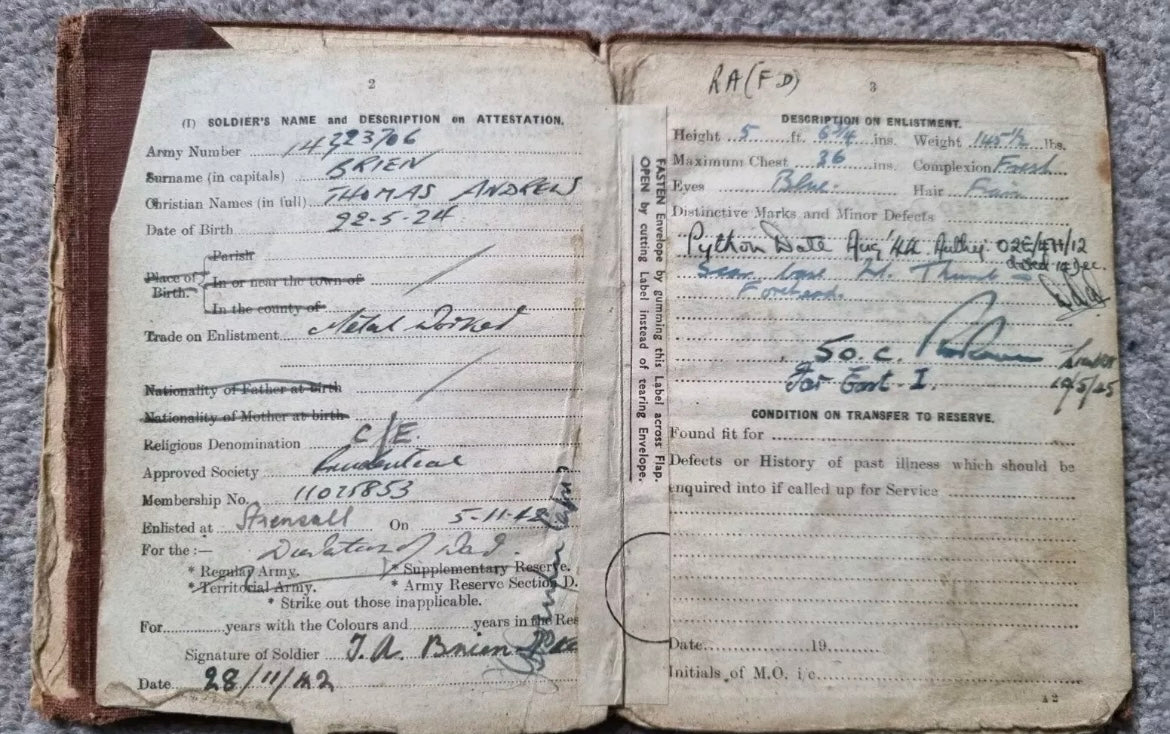 2
(I) SOLDIER'S NAME and DESCRIPTION on ATTESTATION.
Army Number
Surname (in capitals) BRIEN
Christian Names (in full) THOMAS ANDREW
Date of Birth 22-5-24
Place of Birth.
Parish
In or near the town of
In the county of
Trade on Enlistment Metal Worker
Nationality of Father at birth
Nationality of Mother at birth
Religious Denomination C/E.
Approved Society Prudential
Membership No.
Enlisted at Strensall On 5-11-42
For the :— Duration of War.
* Regular Army. * Supplementary Reserve.
* Territorial Army. * Army Reserve Section D.
* Strike out those inapplicable.
For years with the Colours and years in the Res
Signature of Soldier T.A. Brien
Date 28/11/42
FASTEN Envelope by gumming this Label across Flap.
OPEN by cutting Label instead of tearing Envelope.
RA(FD)
3
DESCRIPTION ON ENLISTMENT.
Height 5 ft. 6 3/4 ins. Weight 145 1/2 lbs.
Maximum Chest 36 ins. Complexion Fresh
Eyes Blue. Hair Fair
Distinctive Marks and Minor Defects
Python Date Aug '44
Scar base Thumb
Forehead.
Far East I.
CONDITION ON TRANSFER TO RESERVE.
Found fit for
Defects or History of past illness which should be
enquired into if called up for Service
Date 19
Initials of M.O. i/c
A2